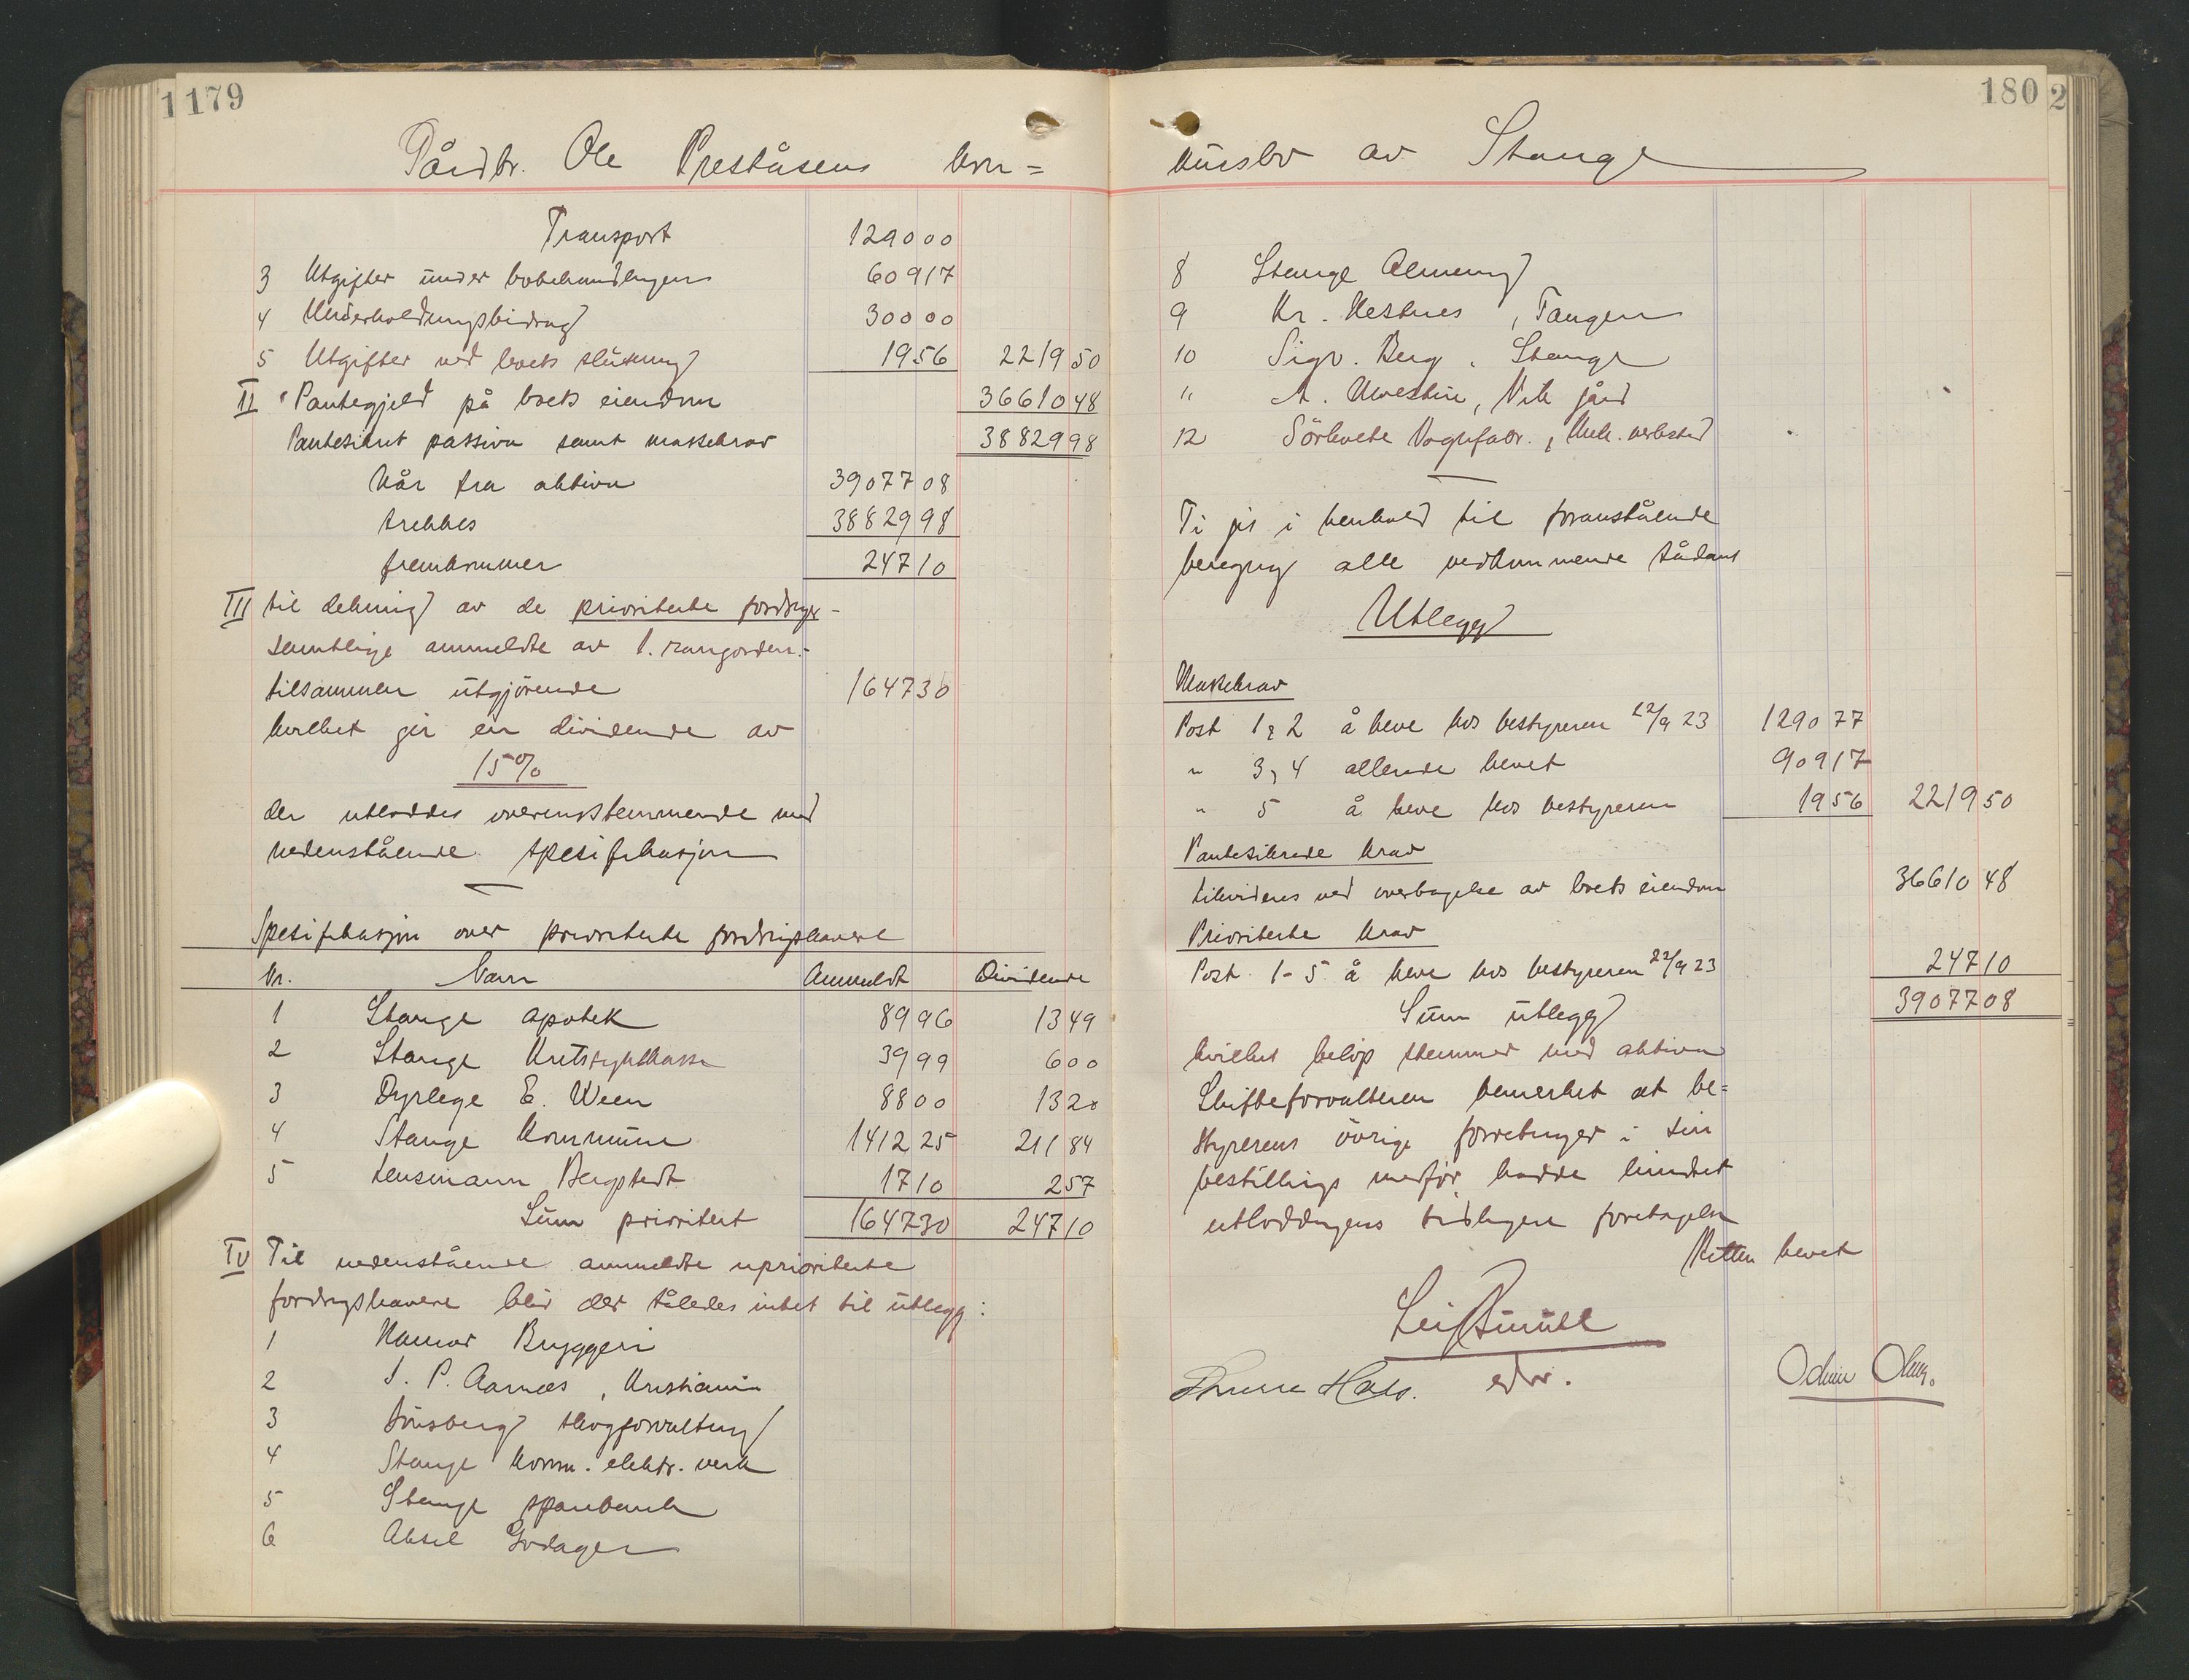 1179
Gårdbr. Ole Preståsens kon=
Transport 1290 00
3 Utgifter under bobehandlingen 609 17
4 Underholdningsbidrag 300 00
5 Utgifter ved boets slutning 19 56 2219 50
II Pantegjeld på boets eiendom 36610 48
Pantesikret passiva samt massekrav 38829 98
Når fra aktiva 39077 08
trekkes 38829 98
fremkommer 247 10
III til dekning av de prioriterte fordringer
samtlige anmeldte av 1. rangorden
tilsammen utgjørende 1647 30
hvilket gir en dividende av
15%
der utloddes overensstemmende med
nedenstående spesifikasjon
Spesifikasjon over prioriterte fordringshavere
Nr. Navn Anmeldt Dividende
1 Stange apotek 89 96 13 49
2 Stange Kretssykekasse 39 99 6 00
3 Dyrlege E. Ween 88 00 13 20
4 Stange kommune 1412 25 211 84
5 Lensmann Bergstedt 17 10 2 57
Sum prioritert 1647 30 247 10
IV Til nedenstående anmeldte uprioriterte
fordringshavere blir der således intet til utlegg:
1 Hamar Bryggeri
2 J. P. Aarnæs, Kristiania
3 Tønsberg skogforvaltning
4 Stange komm. elektr. verk
5 Stange sparebank
6 Aksel Godager
180 2
kursbo av Stange
8 Stange Almenning
9 Kr. Vestnes, Tangen
10 Sigv. Berg, Stange
11 A. Kvestin, Vik gård
12 Sørlvete Vognfabr., Mek. verksted
Ti gis i henhold til foranstående
beregning alle vedkommende sådant
Utlegg
Massekrav
Post 1 & 2 å heve hos bestyreren 22/9 23 1290 77
" 3, 4 allerede hevet 909 17
" 5 å heve hos bestyreren 19 56 2219 50
Pantesikrede krav
likvideres ved overtagelse av boets eiendom 36610 48
Prioriterte krav
Post 1-5 å heve hos bestyreren 22/9 23 247 10
Sum utlegg 39077 08
hvilket beløp stemmer med aktiva
Skifteforvalteren bemerket at be=
styrerens øvrige forretninger i sin
bestillings medfør hadde hindret
utlodningens tidligere foretagelse
Retten hevet
edv.
Odin